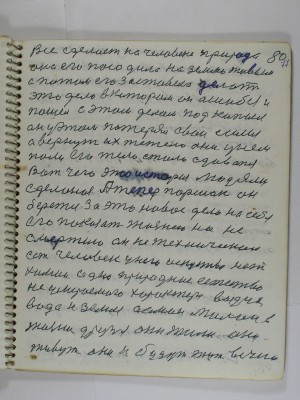 Все сделает на человеке природа 80
она его посадила на землю живым
с потом его заставила делать
это дело в котором он ошибся и
пошел с этим делом под
он у этом потерял свои силы
а вернуть их
его тело стало сдавать
Вот чего этого история людям
сделала А теперь Паршек он
берет за это новое дело на себя
его покажет жизнью на не
смертию он не технический
ест человек у него искусства нет
химии одно природное естество
не умираемого характера воздух
вода и земля самая милая в
жизни друзья они жили они
живут они и будут жить вечно